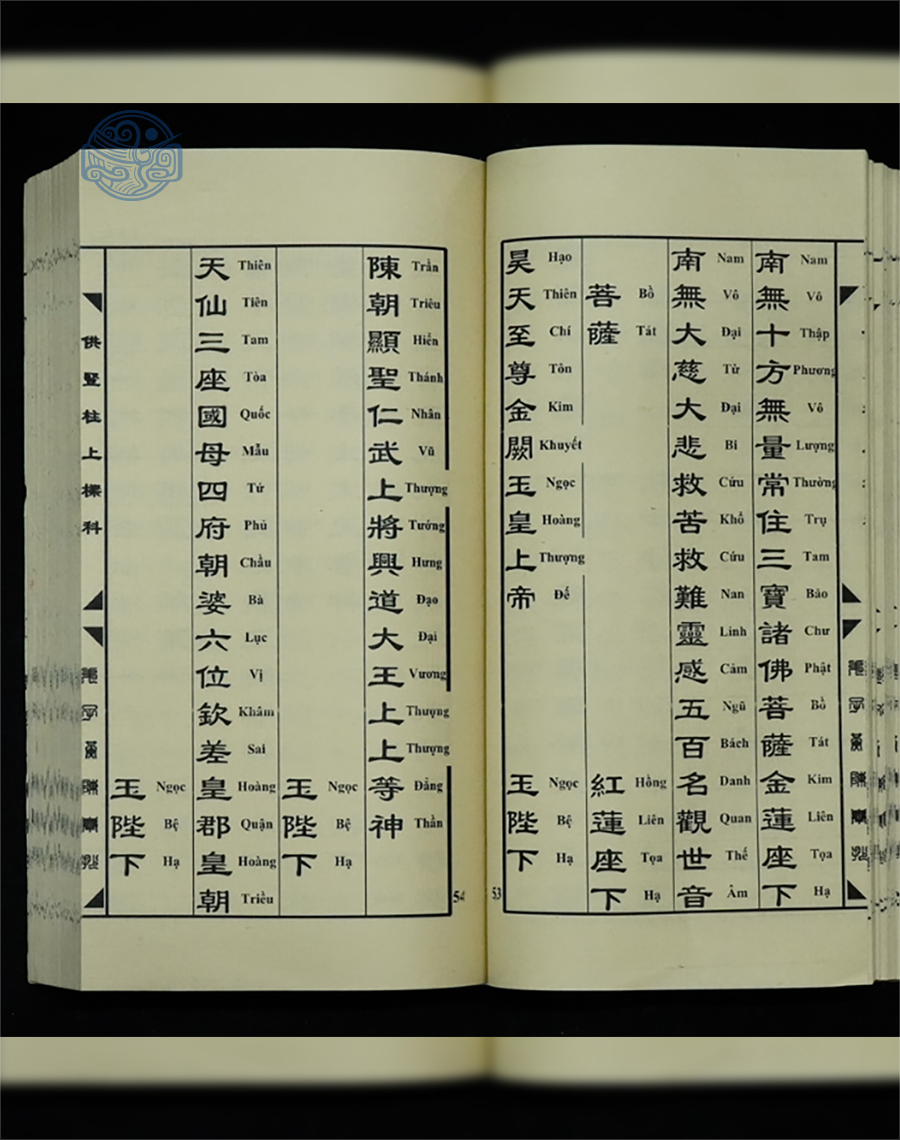 南無十方無量常住三寶諸佛菩薩金蓮座下
Nam Vô Thập Phương Vô Lượng Thường Trụ Tam Bảo Chư Phật Bồ Tát Kim Liên Tọa Hạ
南無大慈大悲救苦救難靈感五百名觀世音
Nam Vô Đại Từ Đại Bi Cứu Khổ Cứu Nan Linh Cảm Ngũ Bách Danh Quan Thế Âm
菩薩 紅蓮座下
Bồ Tát Hồng Liên Tọa Hạ
昊天至尊金闕玉皇上帝 玉陛下
Hạo Thiên Chí Tôn Kim Khuyết Ngọc Hoàng Thượng Đế Ngọc Bệ Hạ
53
陳朝顯聖仁武上將興道大王上上等神
Trần Triêu Hiển Thánh Nhân Vũ Thượng Tướng Hưng Đạo Đại Vương Thượng Thượng Đẳng Thần
玉陛下
Ngọc Bệ Hạ
天仙三座國母四府朝婆六位欽差皇郡皇朝
Thiên Tiên Tam Tòa Quốc Mẫu Tứ Phủ Chầu Bà Lục Vị Khâm Sai Hoàng Quận Hoàng Triều
玉陛下
Ngọc Bệ Hạ
54
供竪柱上樑科